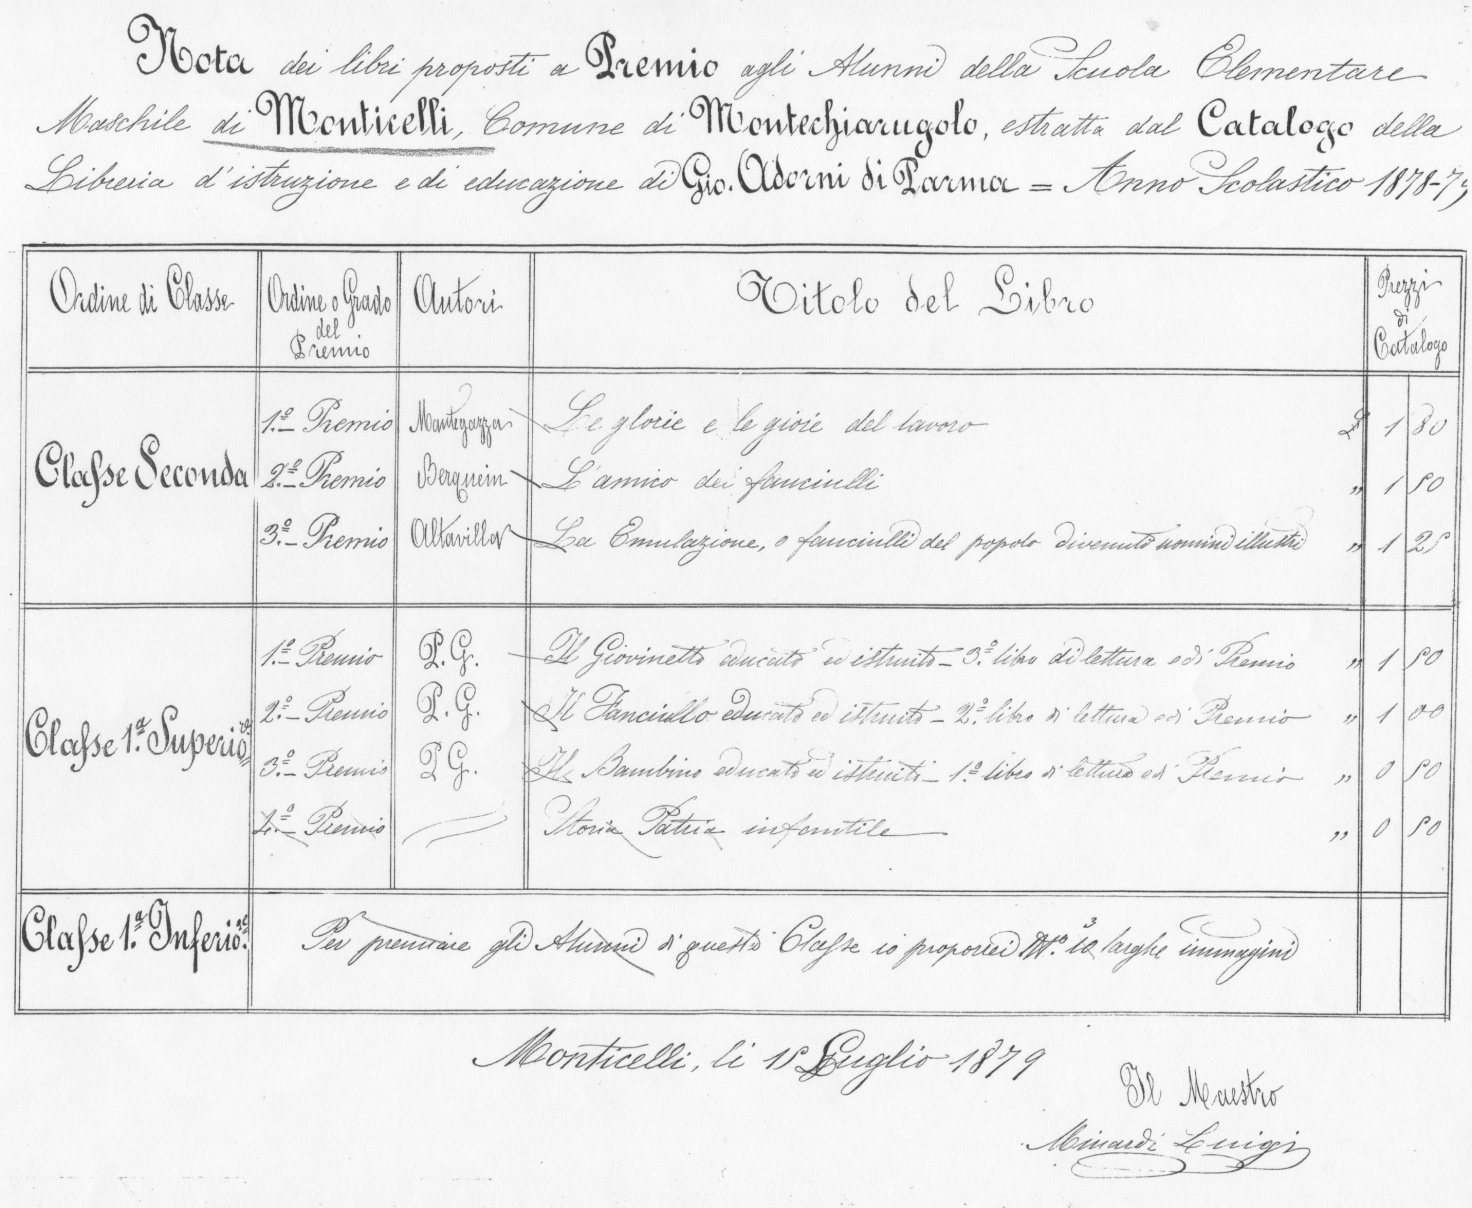 Nota dei libri proposti a Premio agli Alunni della Scuola Elementare
Maschile di Monticelli, Comune di Montechiarugolo, estratta dal Catalogo della
Libreria d'istruzione e di educazione di Gio. Adorni di Parma = Anno Scolastico 1878-79
Ordine di Classe Ordine o Grado del Premio Autori Titolo del Libro Prezzi di Catalogo
Classe Seconda
1.º Premio Mantegazza Le glorie e le gioie del lavoro £ 1 80
2.º Premio Berquein L'amico dei fanciulli " 1 50
3.º Premio Altavilla La Emulazione, o fanciulli del popolo divenuti uomini illustri " 1 25
Classe 1.ª Superio.re
1.º Premio P. G. Il Giovinetto educato ed istruito - 3.º libro di lettura e di Premio " 1 50
2.º Premio P. G. Il Fanciullo educato ed istruito - 2.º libro di lettura e di Premio " 1 00
3.º Premio P G. Il Bambino educato ed istruito - 1.º libro di lettura e di Premio " 0 50
4.º Premio Storia Patria infantile " 0 50
Classe 1.ª Inferio.re Per premiare gli Alunni di questa Classe io proporrei larghe immagini
Monticelli, li 15 Luglio 1879
Il Maestro
Minardi Luigi